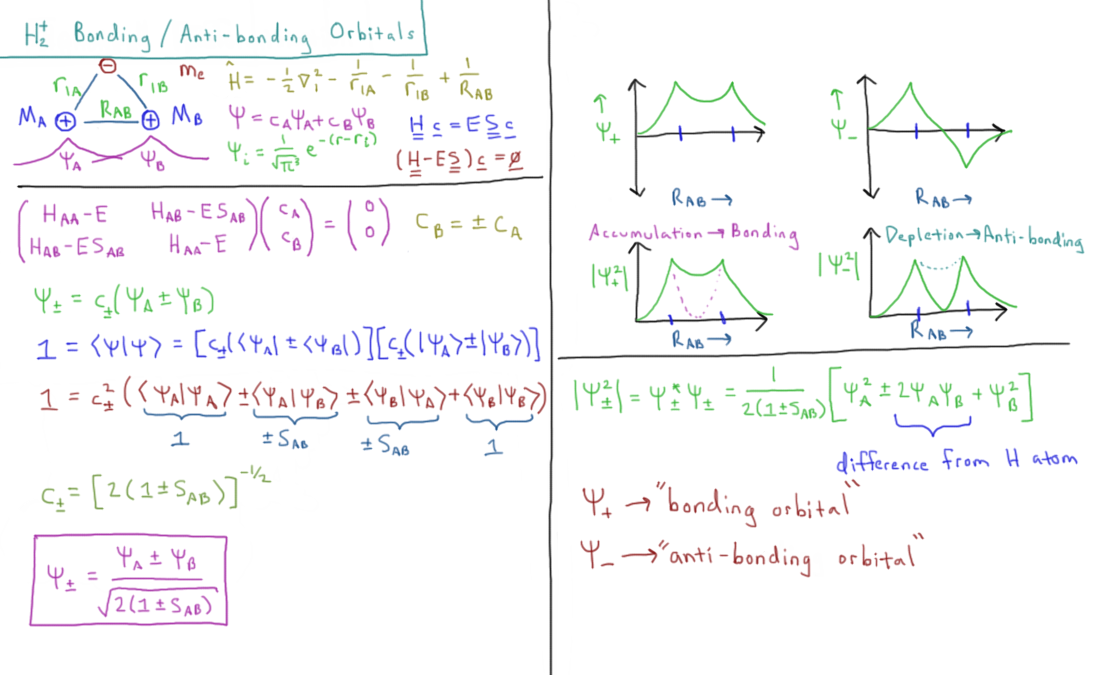 H₂⁺ Bonding / Anti-bonding Orbitals
⊖ mₑ
r₁A r₁B
M_A ⊕ R_AB ⊕ M_B
Ψ_A Ψ_B
Ĥ = -½∇₁² - 1/r₁A - 1/r₁B + 1/R_AB
Ψ = c_AΨ_A + c_BΨ_B
Ψᵢ = 1/√π³ e^-(r-rᵢ)
H c = E S c
(H - E S) c = ∅
(H_AA-E H_AB-ES_AB) (c_A) = (0)
(H_AB-ES_AB H_AA-E) (c_B) (0)
C_B = ± C_A
Ψ± = c±(Ψ_A ± Ψ_B)
1 = ⟨Ψ|Ψ⟩ = [c±(⟨Ψ_A| ± ⟨Ψ_B|)][c±(|Ψ_A⟩ ± |Ψ_B⟩)]
1 = c±² (⟨Ψ_A|Ψ_A⟩ ± ⟨Ψ_A|Ψ_B⟩ ± ⟨Ψ_B|Ψ_A⟩ + ⟨Ψ_B|Ψ_B⟩)
1 ±S_AB ±S_AB 1
c± = [2(1±S_AB)]^-1/2
Ψ± = (Ψ_A ± Ψ_B) / √2(1±S_AB)
↑ Ψ₊
R_AB →
↑ Ψ₋
R_AB →
Accumulation → Bonding
|Ψ₊²|
R_AB →
Depletion → Anti-bonding
|Ψ₋²|
R_AB →
|Ψ±²| = Ψ±* Ψ± = 1/2(1±S_AB) [Ψ_A² ± 2Ψ_AΨ_B + Ψ_B²]
difference from H atom
Ψ₊ → "bonding orbital"
Ψ₋ → "anti-bonding orbital"